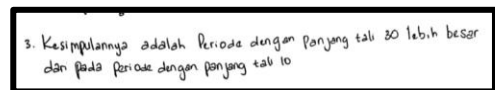 3. Kesimpulannya adalah Periode dengan Panjang tali 30 lebih besar
dari pada Periode dengan panjang tali 10